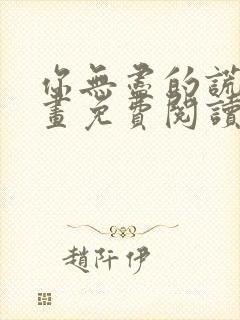 你無盡的謊
畫免費閱讀
趙阡伊